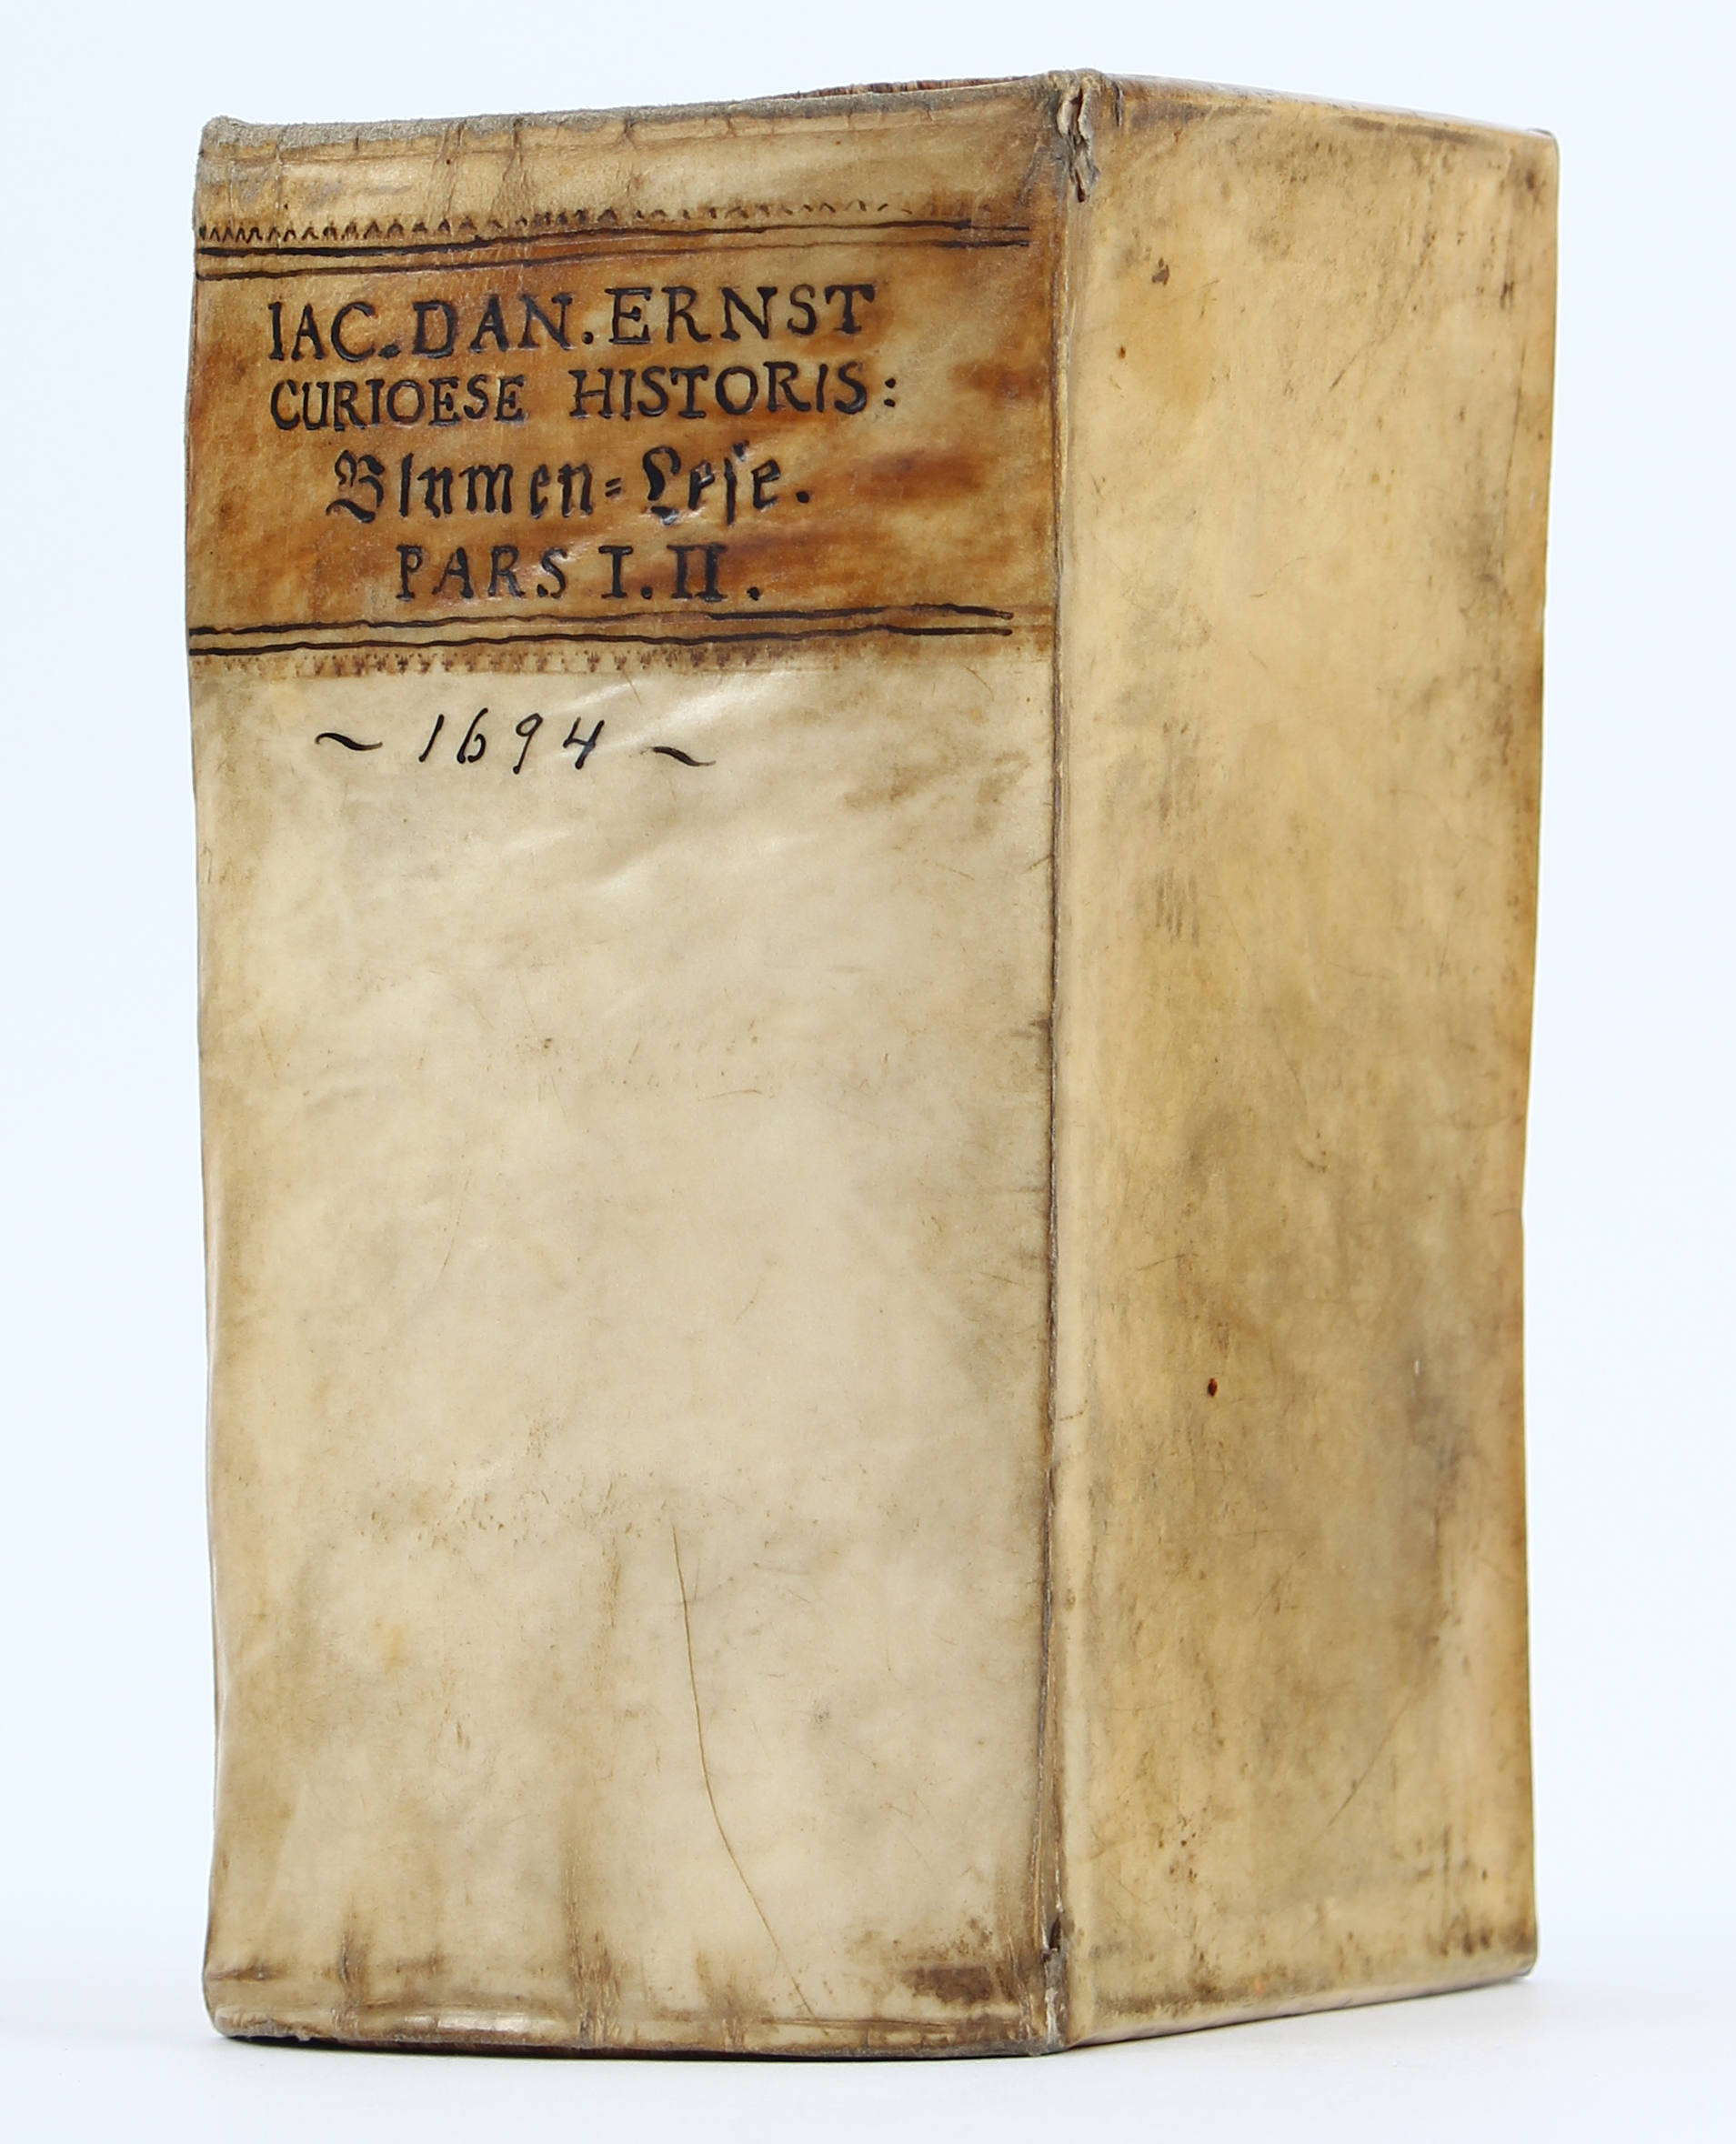 IAC. DAN. ERNST
CURIOESE HISTORIS:
Blumen=Lese.
PARS I. II.
~ 1694 ~